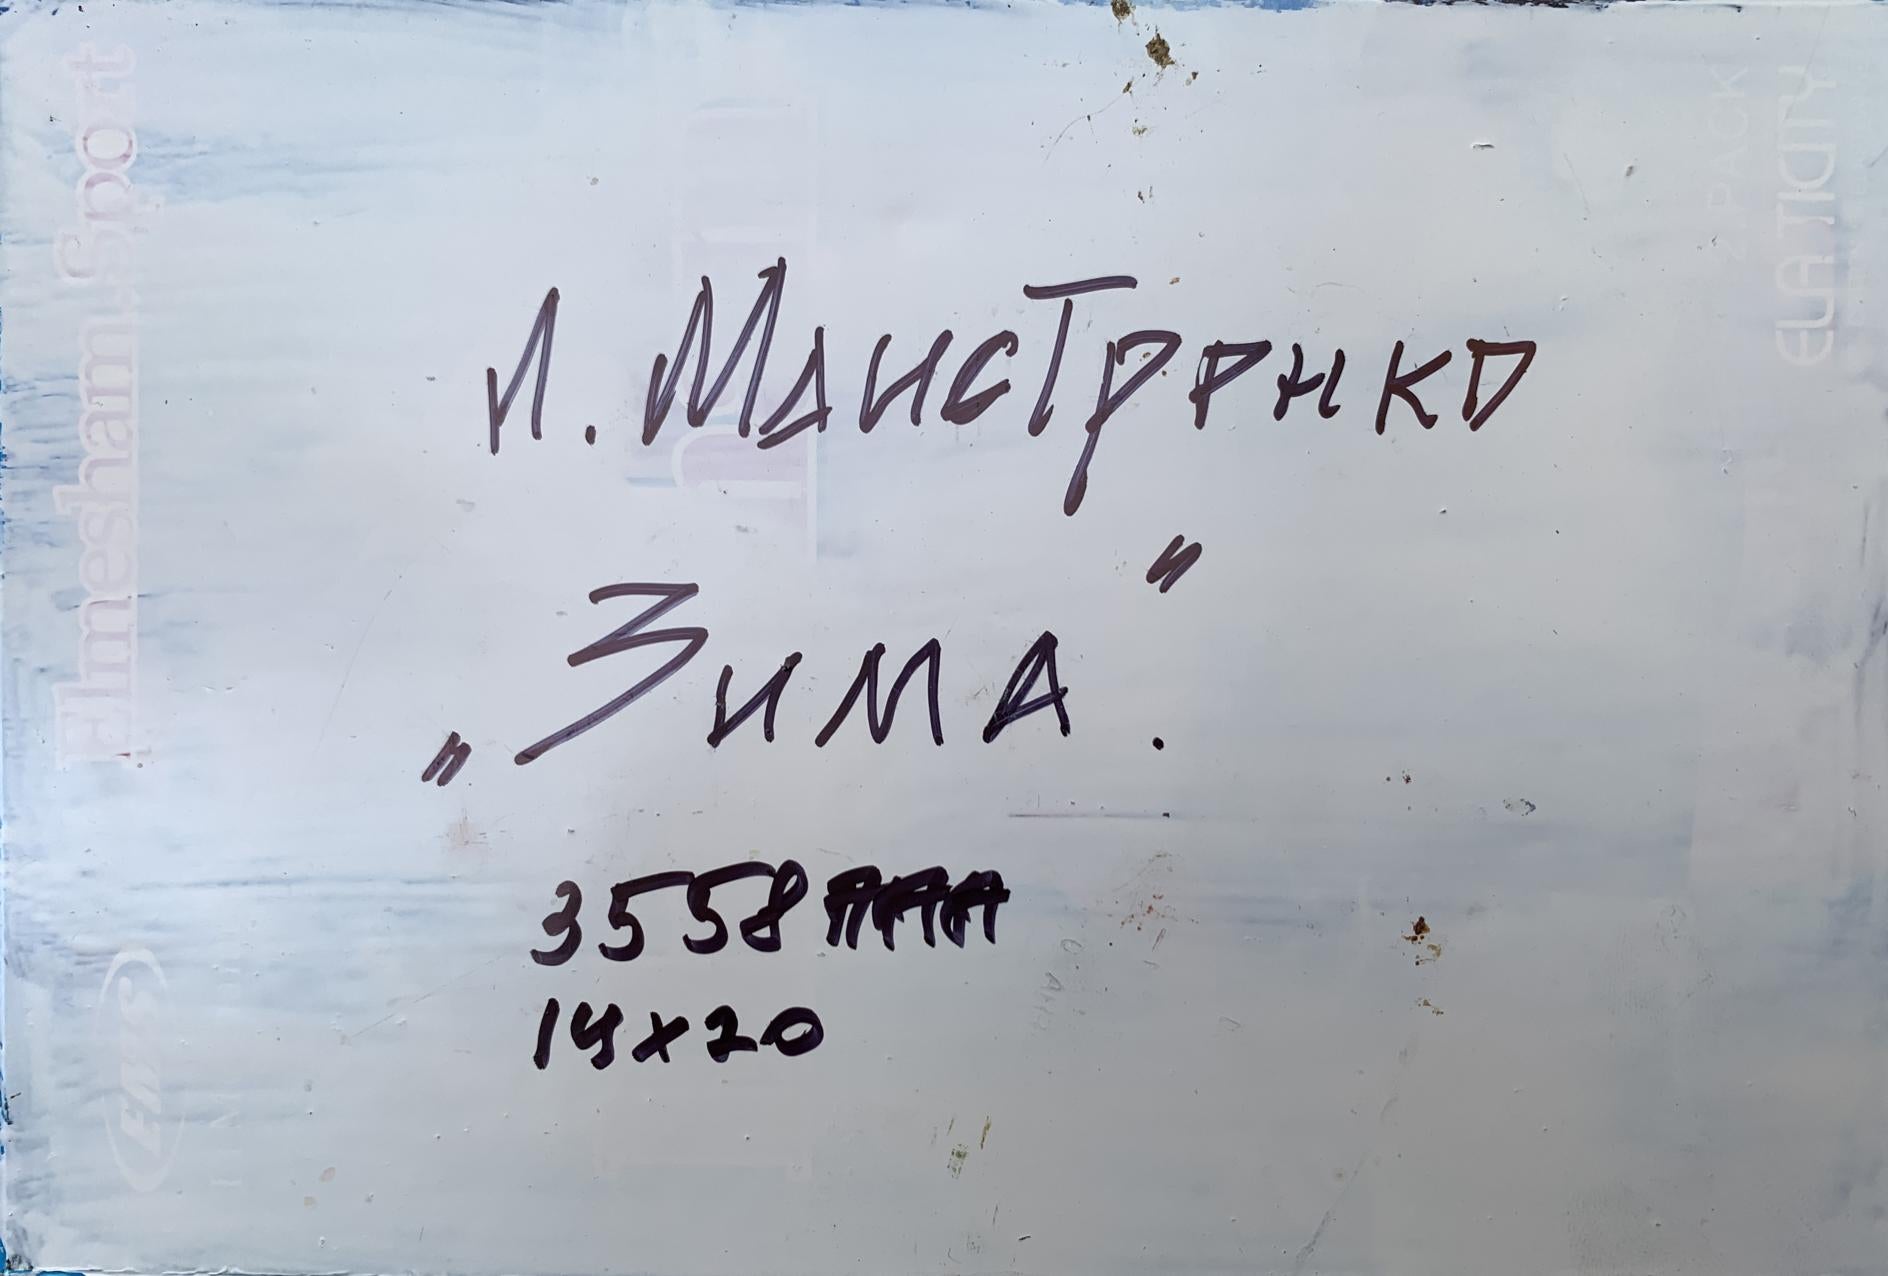 Л. Маистренко
„Зима."
3558 ААА
14х20
Elmesham.Sport
2 PACK
ELATICITY
EMS